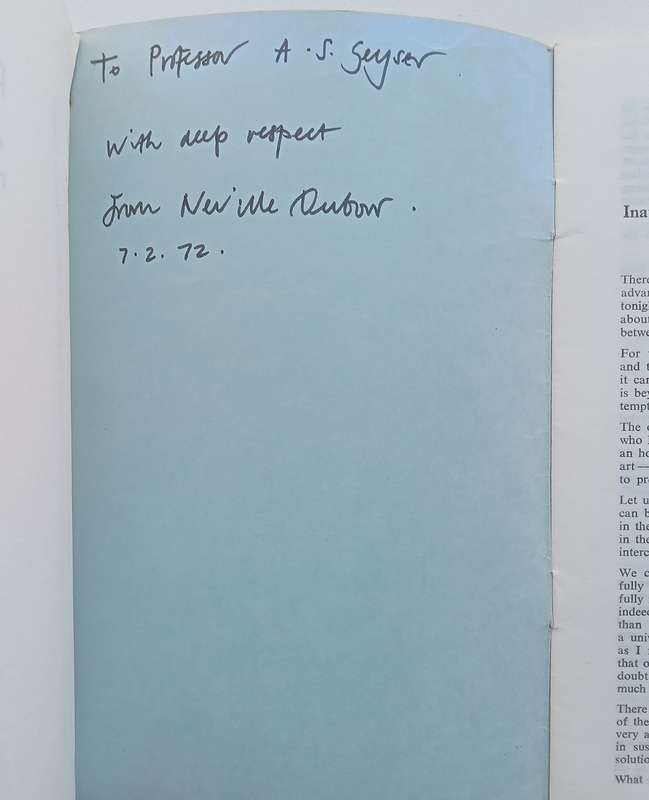 To Professor A.S. Geyser
With deep respect
from Neville Dubow.
7.2.72.
Ina
There
advar
tonig
about
betwe
For
and t
it car
is bey
tempt
The
who
an ho
art—
to pr
Let u
can b
in the
in the
interc
We c
fully
fully
indeed
than
a univ
as I
that o
doubt
much
There
of the
very a
in sus
solutio
What